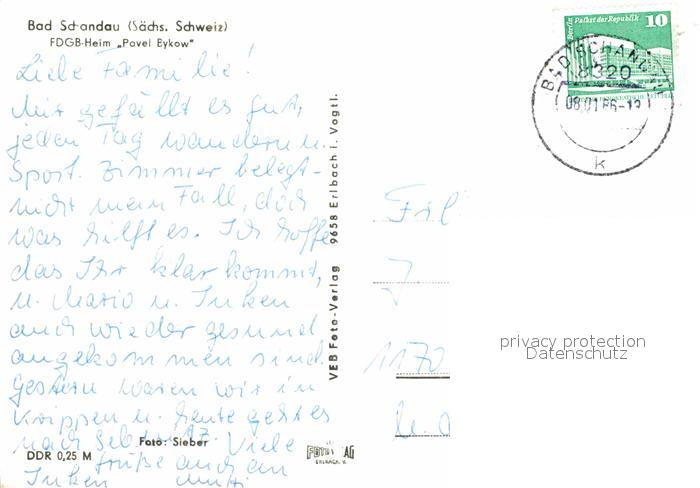 Bad Schandau (Sächs. Schweiz)
FDGB-Heim „Pavel Bykow"
Liebe Familie!
Mir gefällt es gut,
jeden Tag wandern u.
Sport. Zimmer belegt -
nicht mein Fall, doch
was hilft es. Ich hoffe
das Ihr klar kommt,
u. Mario u. Inken
auch wieder gesund
angekommen sind.
Gestern waren wir in
Krippen u. heute geht es
nach Sebnitz. Viele
Grüße auch an
Inken Mutti
Foto: Sieber
DDR 0,25 M
VEB Foto-Verlag 9658 Erlbach i. Vogtl.
FOTO AG
ERLBACH. V.
Berlin Palast der Republik 10
BAD SCHANDAU
8320
08.01.86-13
k
Frl
J
1170
privacy protection
Datenschutz